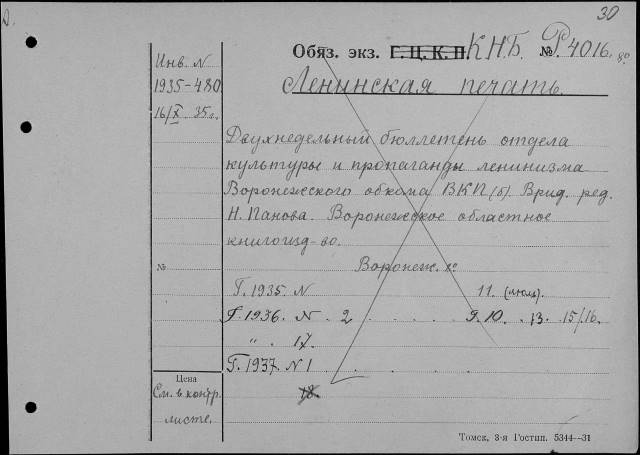 30
Обяз. экз. Г.Ц.К.П. КНБ. № Р4016. 8°.
Инв. N
1935-480
16/X 35г.
Ленинская печать.
Двухнедельный бюллетень отдела
культуры и пропаганды ленинизма
Воронежского обкома ВКП(б). Врид. ред.
Н. Панова. Воронежское областное
книгоизд-во.
№
Воронеж. 8°
Г. 1935. N 11. (июль).
Г. 1936. N. 2 . . . . . 9. 10. . 13. 15/16.
" . 17.
Г. 1937. N 1 . . . .
Цена
См. в контр.
листе.
18.
Томск, 3-я Гостип. 5344—31